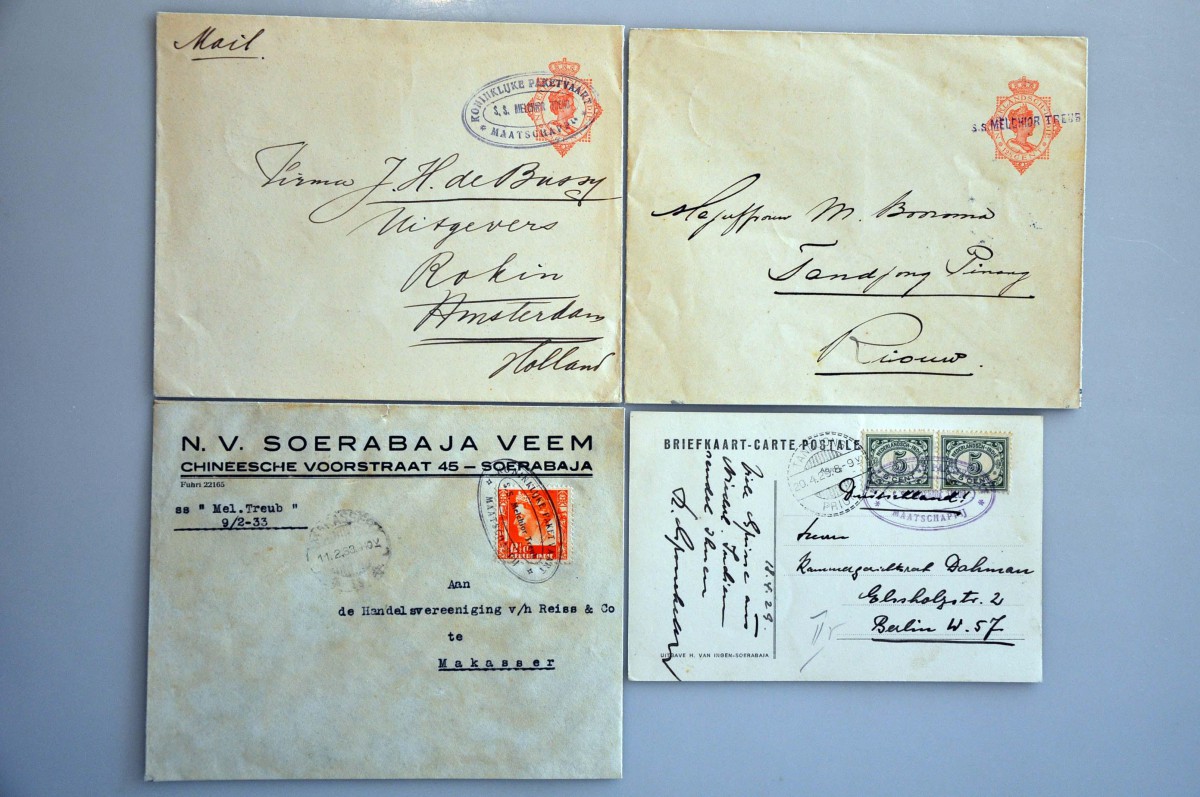 Mail.
KONINKLIJKE PAKETVAART
S.S. MELCHIOR TREUB
* MAATSCHAPPIJ *
Firma J. H. de Bussy
Uitgevers
Rokin
Amsterdam
Holland
S.S. MELCHIOR TREUB
CENT
Mejuffrouw M. Booroma
Tandjong Pinang
Riouw.
N. V. SOERABAJA VEEM
CHINEESCHE VOORSTRAAT 45 – SOERABAJA
Fuhri 22165
ss " Mel.Treub "
9/2-33
11.2.33
Aan
de Handelsvereeniging v/h Reiss & Co
te
Makasser
BRIEFKAART-CARTE POSTALE
20.4.29.8-9
PRIOK
5 5
CENT
* MAATSCHAPPIJ *
Duitschland!
18.4.29.
Viele Grüsse aus
Niederl. Indien
sendet Ihnen
Herrn
Kammergerichtsrat Dahman
Elssholzstr. 2
Berlin W. 57
UITGAVE H. VAN INGEN-SOERABAJA